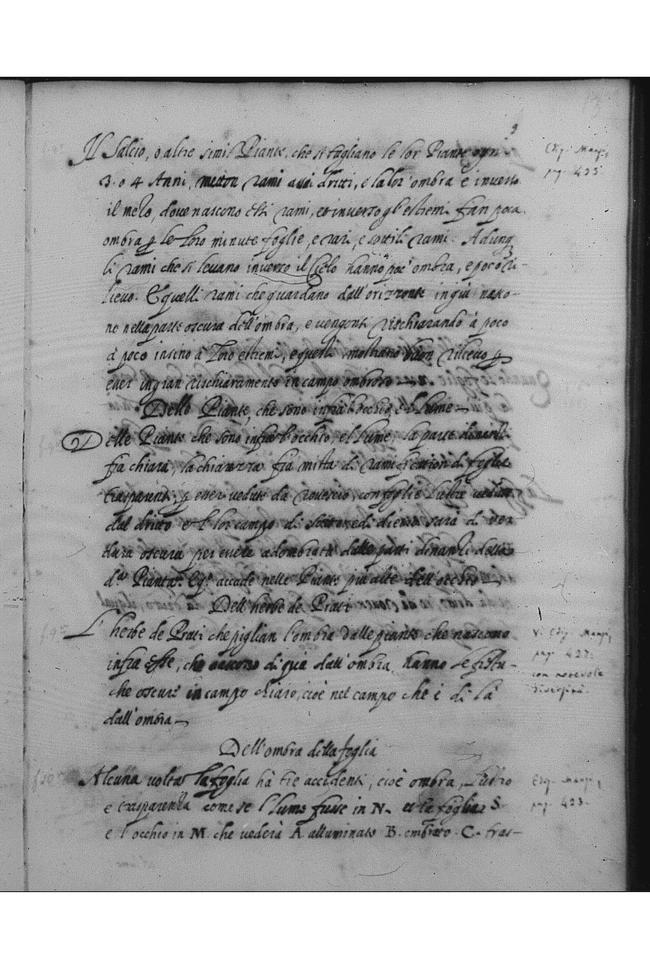 9
Il Salcio, o altre simil Piante, che si tagliano le lor Piante ogni
3. o 4 Anni, metton rami assai dritti, e la lor ombra è inverso
il mezo, dove nascono essi rami, et inverso gl'estremi fan poca
ombra p le loro minute foglie, e rari, e sottili rami. Adunq
li rami che si levano inverso il Cielo hanno poc'ombra, e poco Ri-
lievo. E quelli rami che guardano dall'orizzonte in giù nasco-
no nella parte oscura dell'ombra, e vengono rischiarando à poco
à poco insino à loro estremi, e questi mostrano buon rilievo p
esser in gran rischiaramento in campo ombroso
Delle Piante, che sono infra l'occhio, e'l lume
Delle Piante che sono infra l'occhio, e'l lume, la parte dinanzi
fia chiara, la chiarezza fia mista di rami di foglie
trasparenti, p esser vedute da rovescio, con foglie lustre vedute
dal dritto e'l lor campo di sotto e di dietro sarà di ver
dura oscura per essere adombrata dalle parti dinanzi della
d.a Pianta. accade nelle Piante più alte dell'occhio
Dell'herbe de Prati
L'herbe de Prati che piglian l'ombra dalle piante che nascono
infra esse, che di quà dall'ombra, hanno le festu-
che oscure in campo chiaro, cioè nel campo che è di là
dall'ombra
Dell'ombra della foglia
Alcuna volta la foglia hà tre accidenti, cioè ombra, lustro
e trasparenza come se l'lume fusse in N. et la foglia S.
e l'occhio in M. che vederà A. alluminato B. ombrato. C. tras-
Ediz. Manzi,
pag. 435
V. Ediz. Manzi,
pag. 427.
con notevole
diversità.
Ediz. Manzi,
pag. 423.